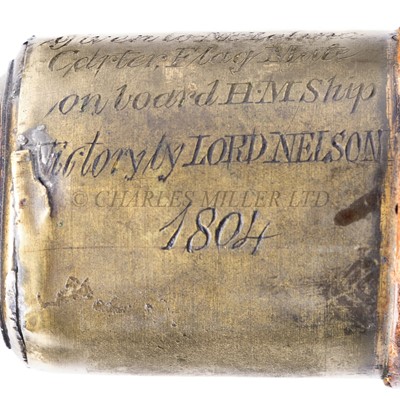 Carter, Flag Mate
on board H.M Ship
Victory, by LORD NELSON
© CHARLES MILLER LTD
1804